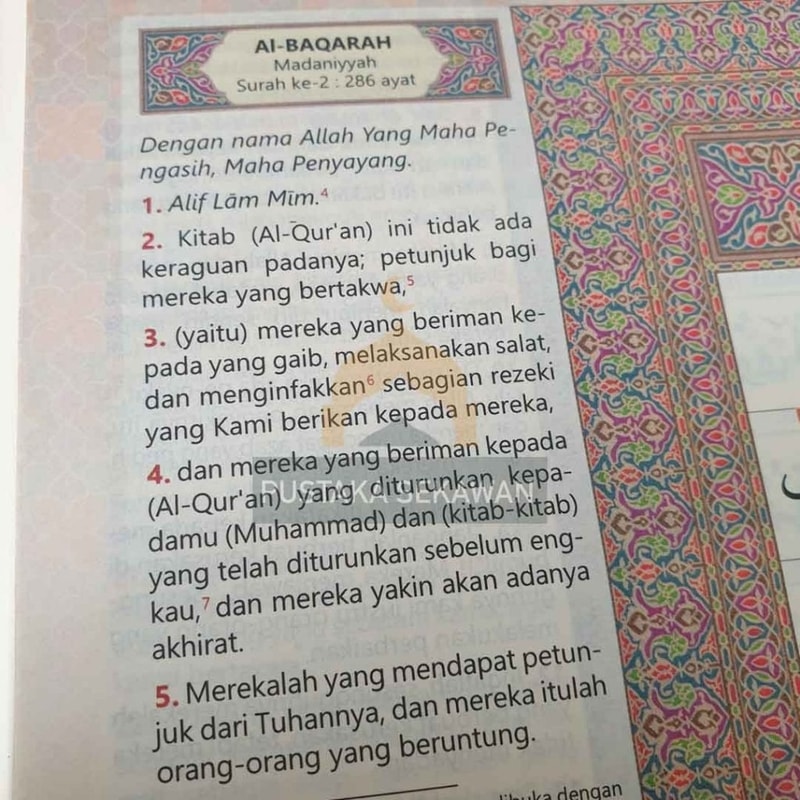 Al-BAQARAH
Madaniyyah
Surah ke-2 : 286 ayat
Dengan nama Allah Yang Maha Pe-
ngasih, Maha Penyayang.
1. Alif Lām Mīm.⁴
2. Kitab (Al-Qur'an) ini tidak ada
keraguan padanya; petunjuk bagi
mereka yang bertakwa,⁵
3. (yaitu) mereka yang beriman ke-
pada yang gaib, melaksanakan salat,
dan menginfakkan⁶ sebagian rezeki
yang Kami berikan kepada mereka,
4. dan mereka yang beriman kepada
(Al-Qur'an) yang diturunkan kepa-
damu (Muhammad) dan (kitab-kitab)
yang telah diturunkan sebelum eng-
kau,⁷ dan mereka yakin akan adanya
akhirat.
5. Merekalah yang mendapat petun-
juk dari Tuhannya, dan mereka itulah
orang-orang yang beruntung.
dengan
PUSTAKA SEKAWAN